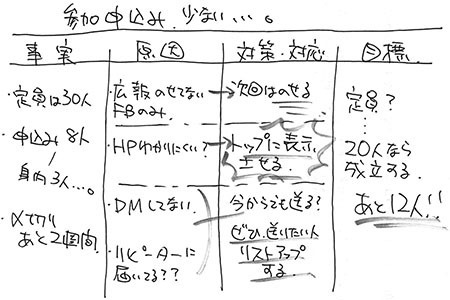 参加申込み 少ない…。
事実
・定員は30人
・申込み 8人
身内3人…。
・〆切り
あと2週間
原因
・広報のせてない
FBのみ
・HPわかりにくい?
・DMしてない
・リピーターに
届いてる??
対策・対応
→次回はのせる
→トップに表示
させる
今からでも送る?
ぜひ、送りたい人
リストアップ
する
目標
定員?
⋮
20人なら
成立する。
あと12人!!